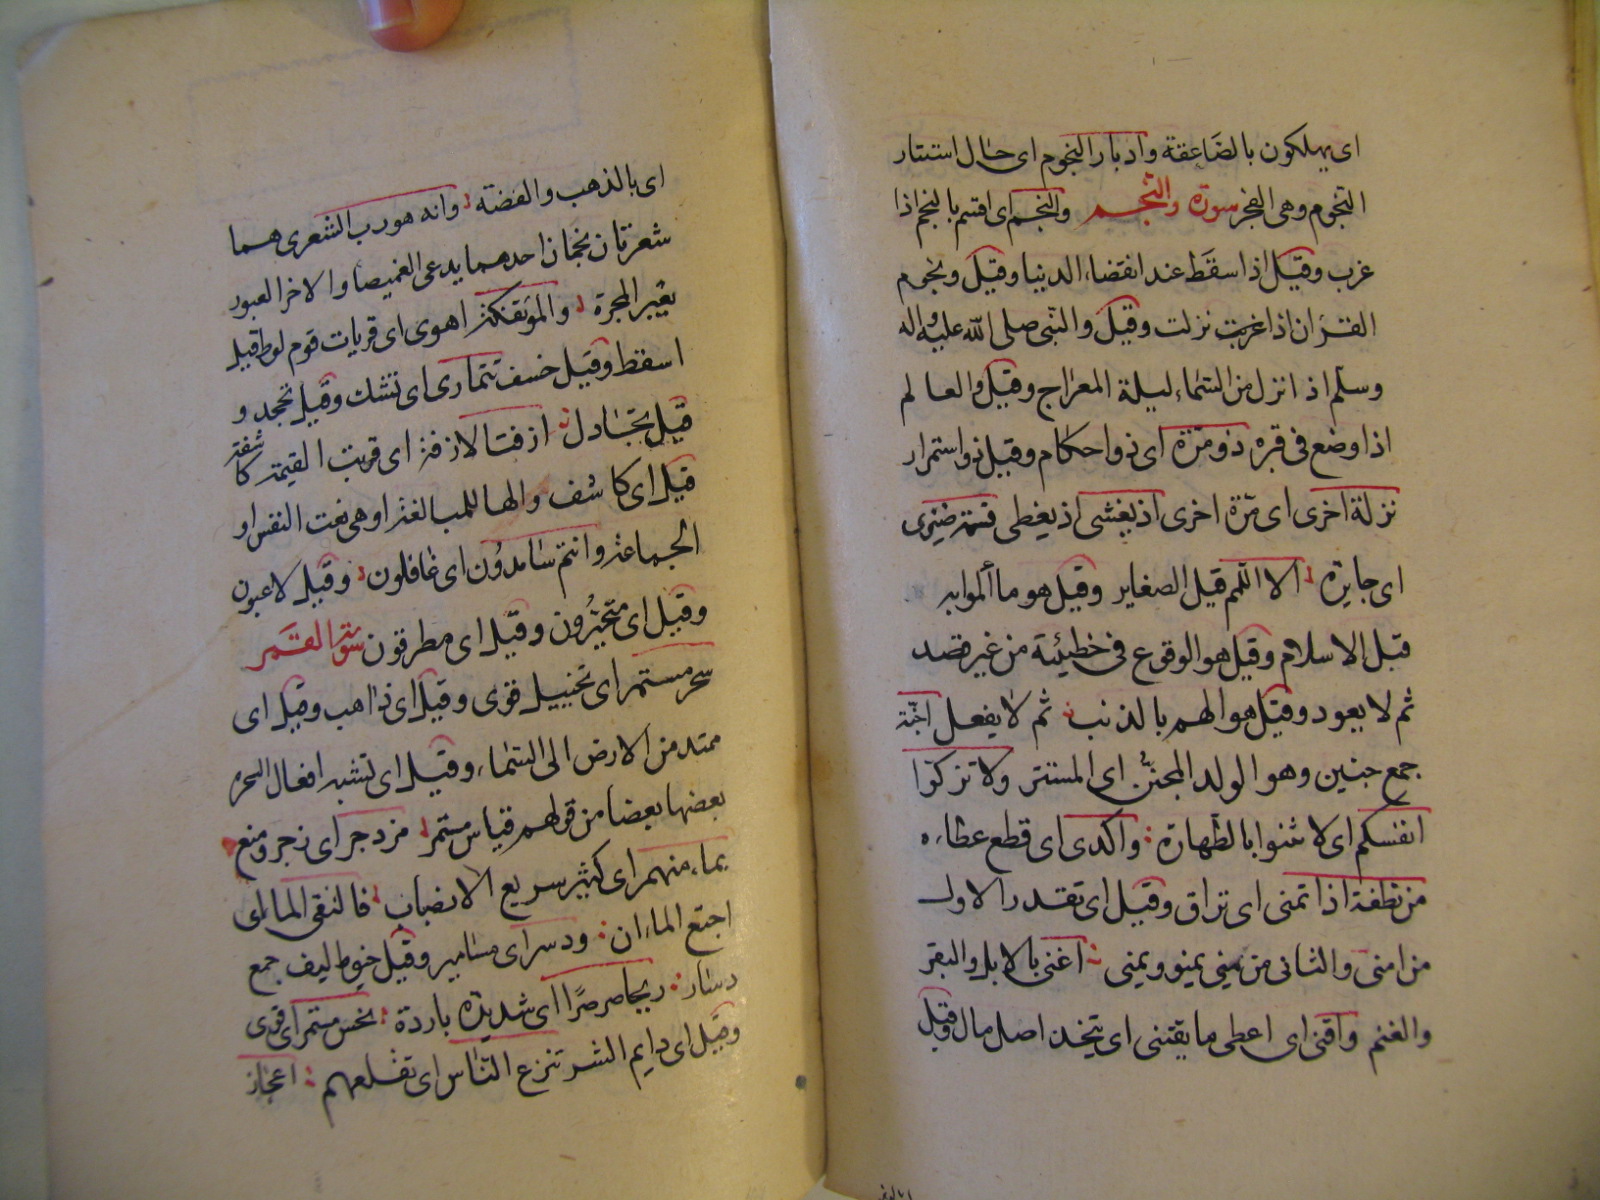 اى يهلكون بالصاعقة وادبار النجوم اى حال استتار
النجوم وهى الفجر سورة والنجم والنجم اى اقسم بالنجم اذا
غرب وقيل اذا سقط عند انقضاء الدنيا وقيل ونجوم
القرآن اذا غربت نزلت وقيل والنبى صلى الله عليه واله
وسلم اذ انزل من السماء ليلة المعراج وقيل والعالم
اذا وضع فى قبره ذو مرة اى ذو احكام وقيل ذو استمرار
نزلة اخرى اى مرة اخرى اذ يغشى اذ يغطى قسمة ضيزى
اى جايزه الا اللمم قيل الصغاير وقيل هو ما ألموا به
قبل الاسلام وقيل هو الوقوع فى خطيئة من غير قصد
ثم لا يعود وقيل هو الهم بالذنب ثم لا يفعل اجنة
جمع جنين وهو الولد المجنن اى المستتر ولا تزكوا
انفسكم اى لا تثنوا بالطهارة واكدى اى قطع عطاءه
من نطفة اذا تمنى اى تراق وقيل اى تقدر الاول
من امنى والثانى من منى يمنو ويمنى اغنى بالابل والبقر
والغنم واقنى اى اعطى ما يقتنى اى يتخذ اصل مال وقيل
اى بالذهب والفضة وانه هو رب الشعرى هما
شعريان نجمان احدهما يدعى الغميصا والاخر العبور
بغير المجرة والمؤتفكة اهوى اى قريات قوم لوط قيل
اسقط وقيل خسف تتمارى اى تتشك وقيل تجحد و
قيل تجادل ازفت الازفة اى قربت القيمة كاشفة
قيل اى كاشف والها للمبالغة او هى نعت النفس او
الجماعة وانتم سامدون اى غافلون وقيل لاعبون
وقيل اى متحيرون وقيل اى مطرقون سورة القمر
سحر مستمر اى تخييل قوى وقيل اى ذاهب وقيل اى
ممتد من الارض الى السماء وقيل اى تشبه افعال السحره
بعضها بعضا من قولهم قياس مستمر مزدجر اى زجر ومنع
بماء منهمر اى كثير سريع الانصباب فالتقى الماء اى
اجتمع الماءان ودسر اى مسامير وقيل خيوط ليف جمع
دسار ريحا صرصرا اى شديده باردة نحس مستمر اى قوى
وقيل اى دايم الشر تنزع الناس اى تقلعهم اعجاز